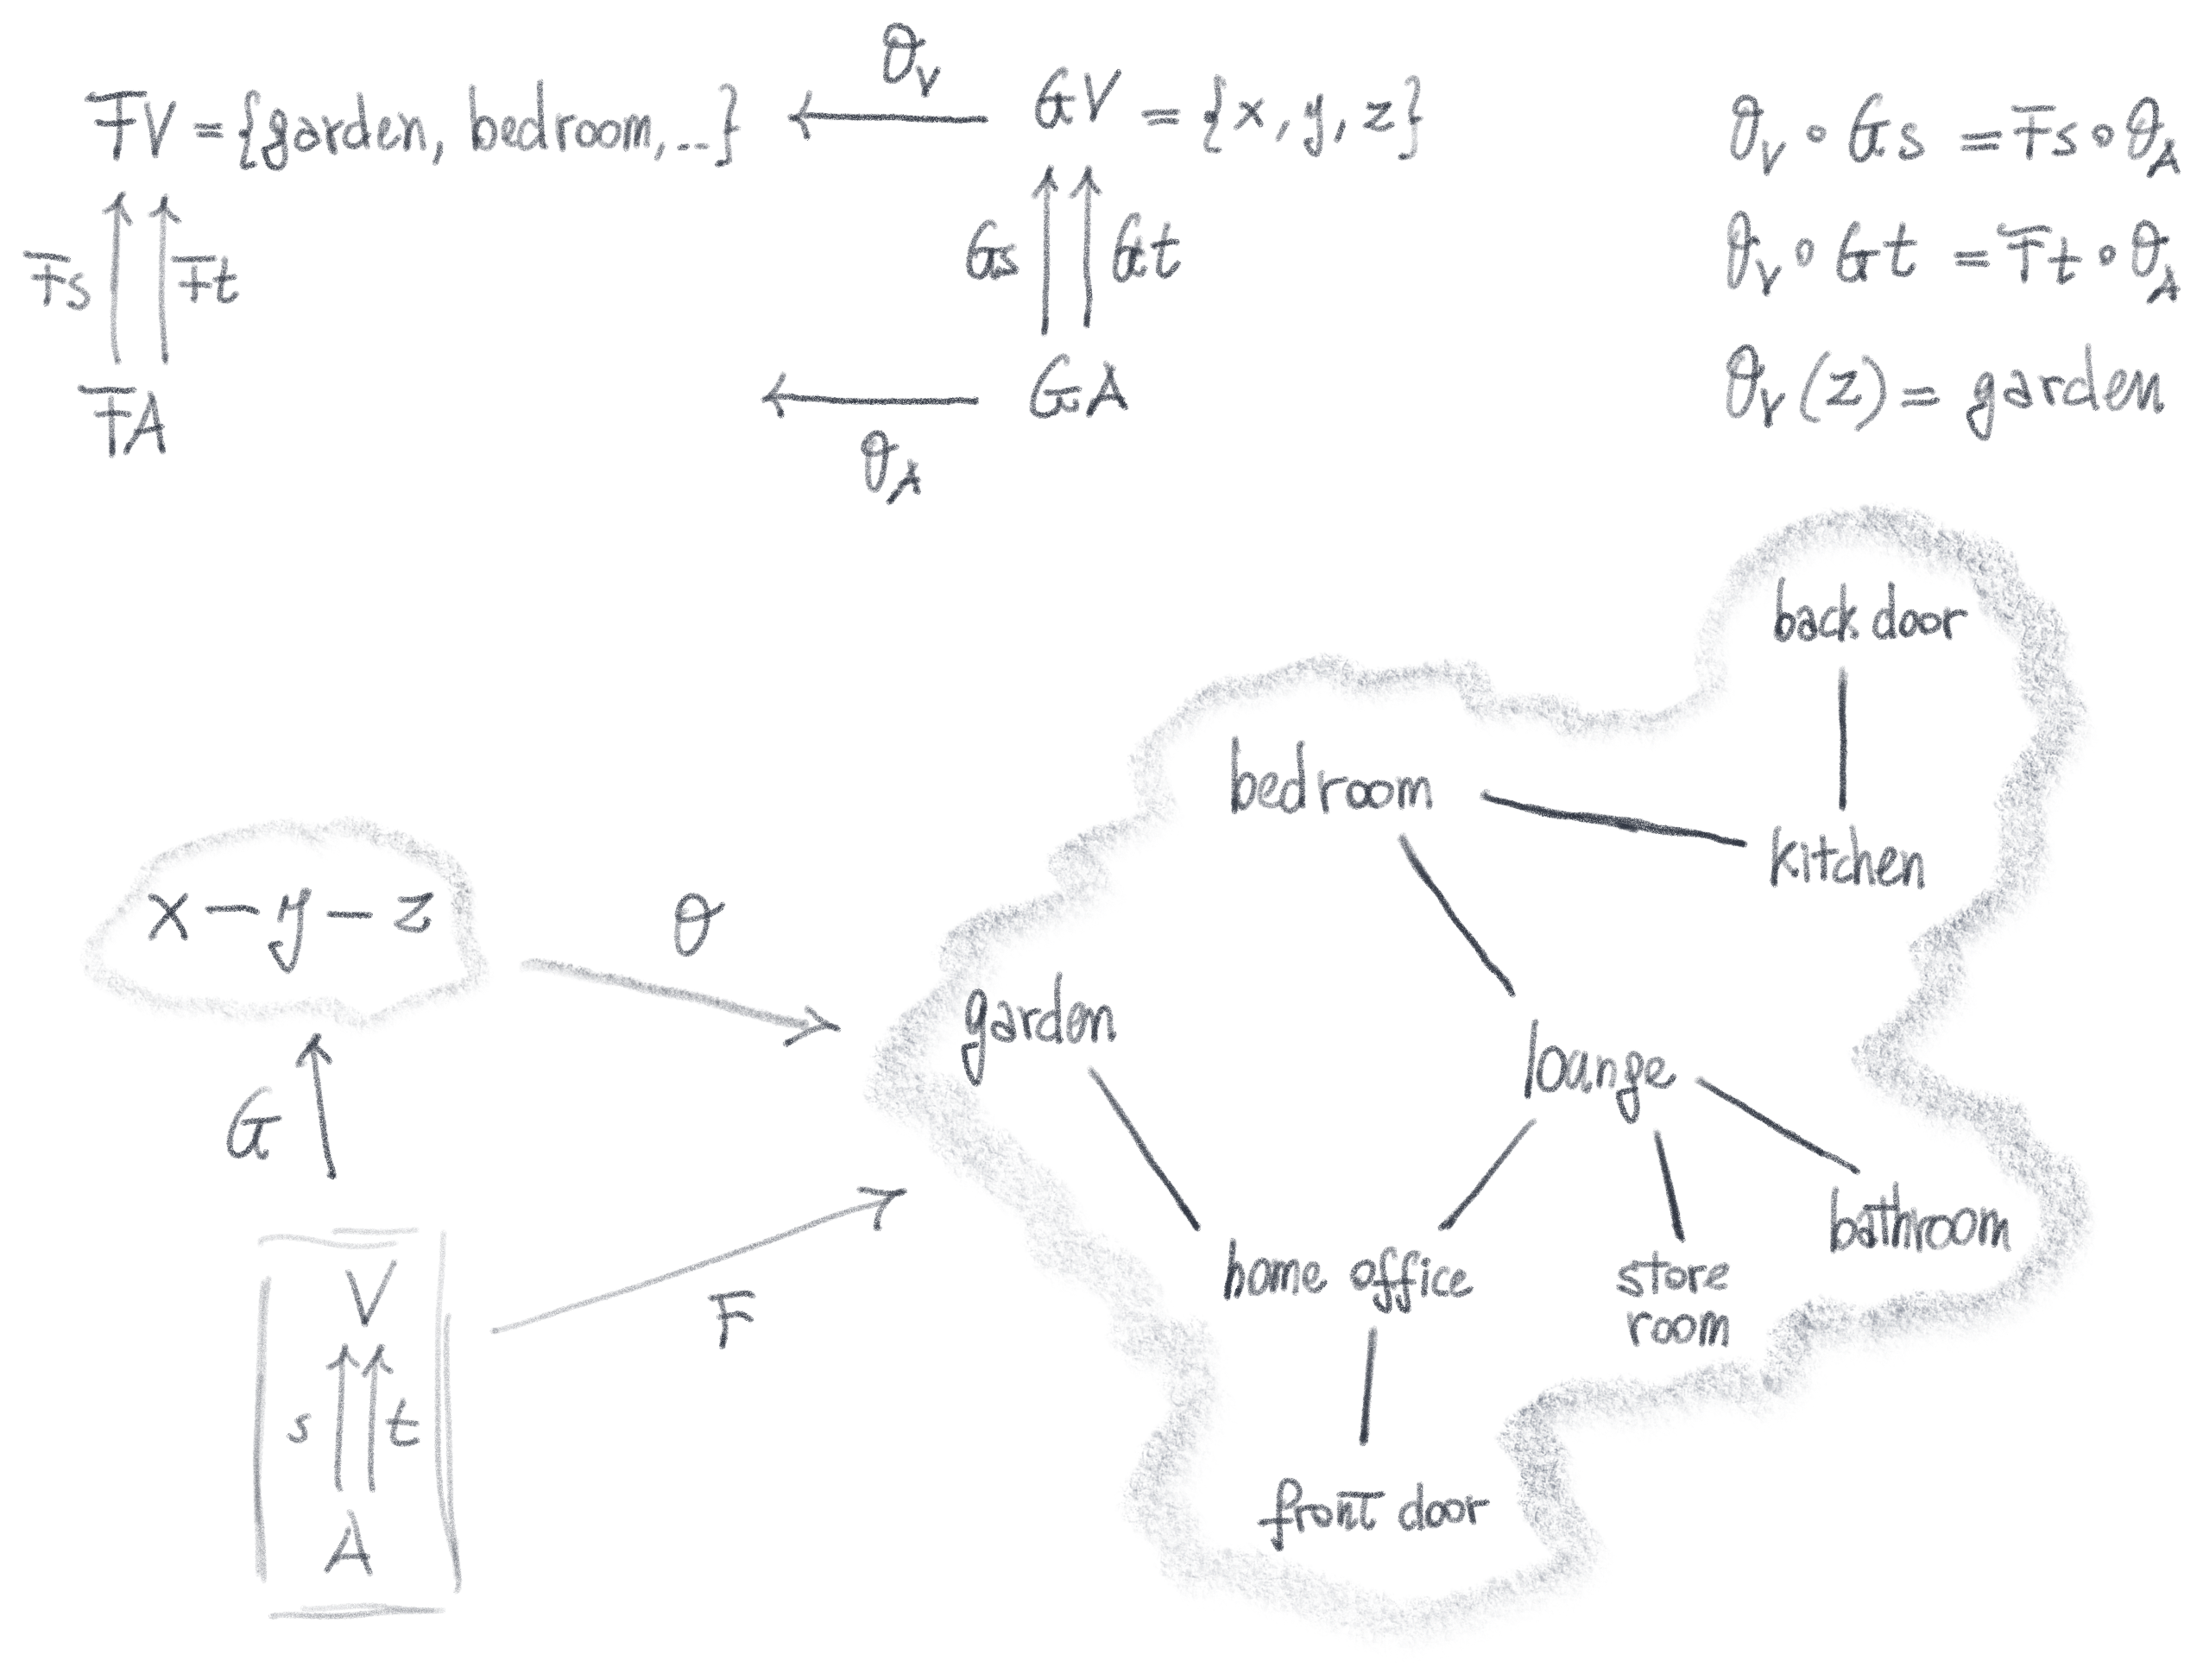 FV = {garden, bedroom, ..}
θ_V
GV = {x, y, z}
Fs
Ft
Gs
Gt
FA
θ_A
GA
θ_V ∘ Gs = Fs ∘ θ_A
θ_V ∘ Gt = Ft ∘ θ_A
θ_V (z) = garden
x — y — z
θ
G
F
V
s
t
A
back door
bedroom
kitchen
garden
lounge
bathroom
home office
store
room
front door